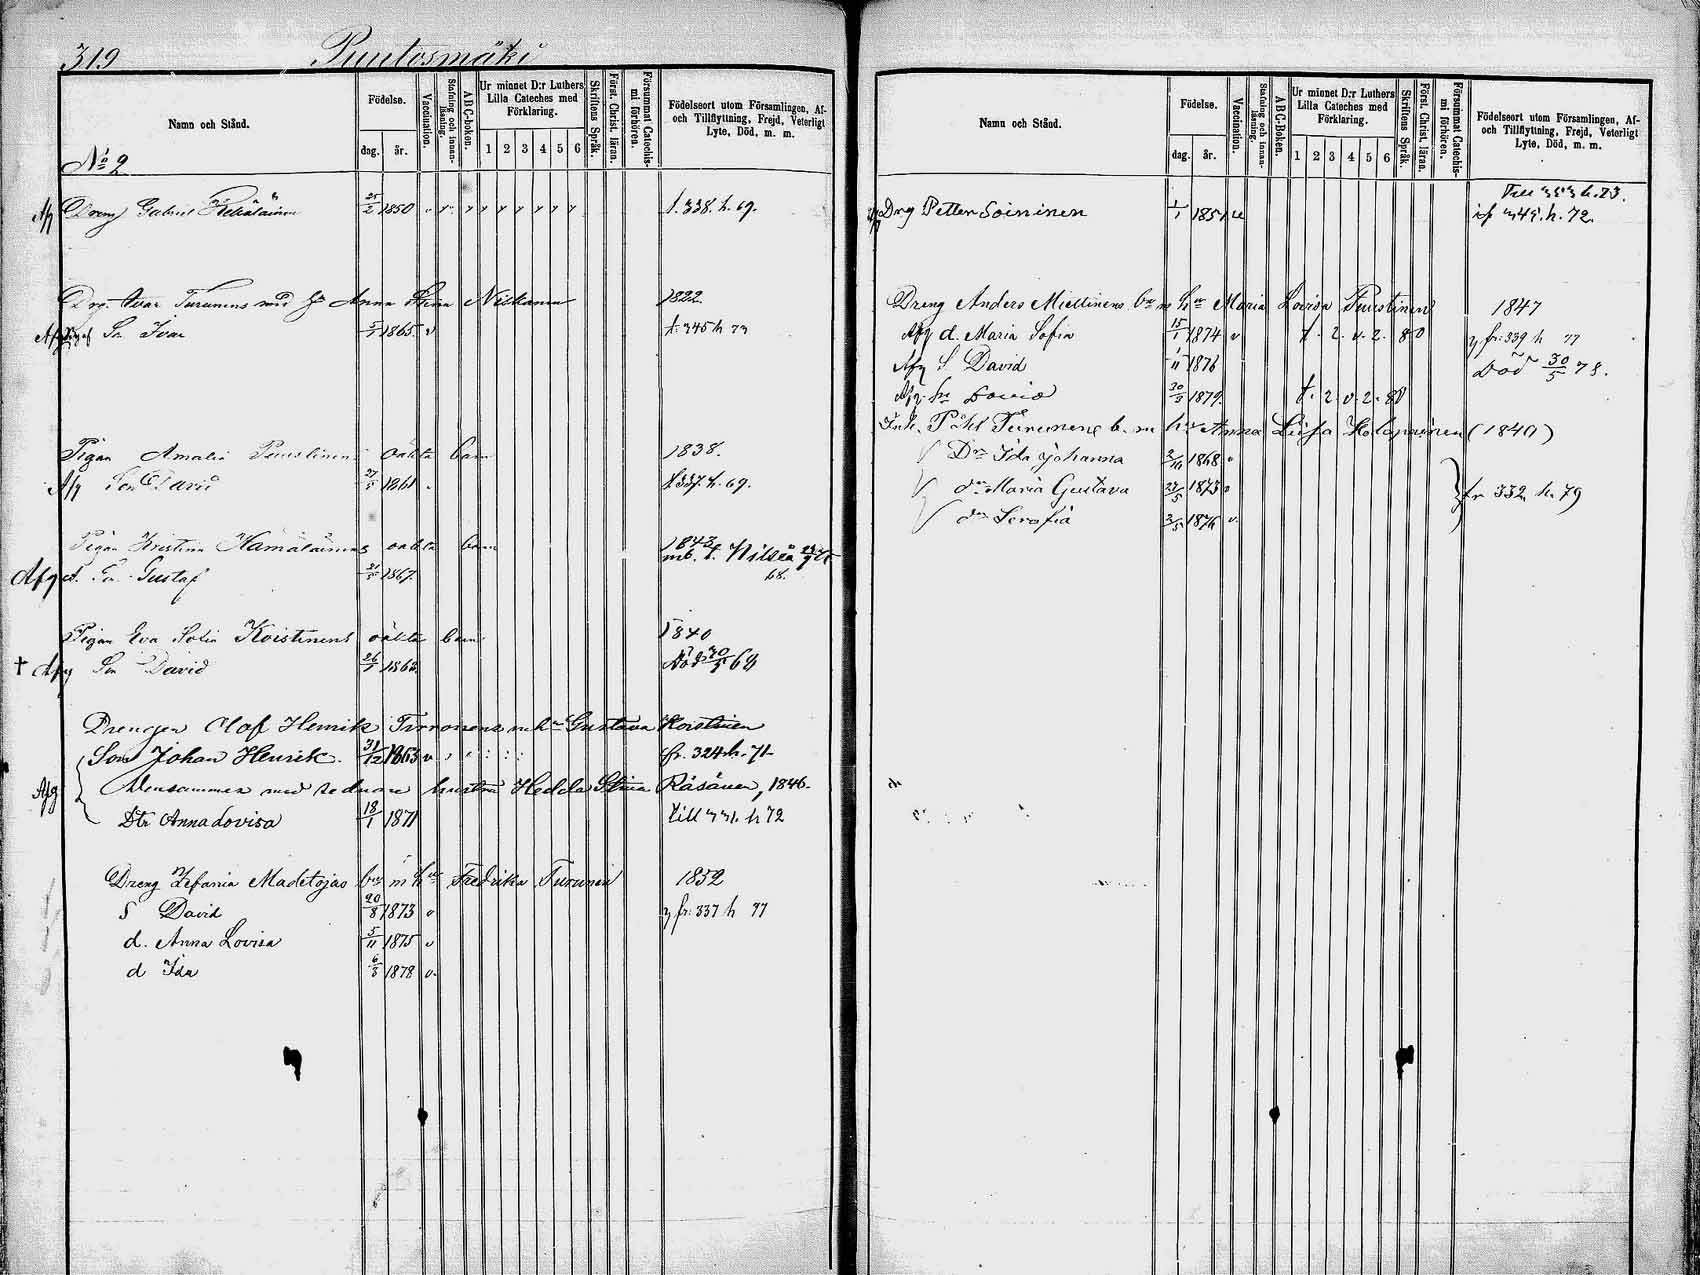 319 Puutosmäki
Namn och Stånd.
Födelse.
dag. år.
Vaccination.
Stafning och innanläsning.
ABC-boken.
Ur minnet D:r Luthers Lilla Cateches med Förklaring.
1 2 3 4 5 6
Skriftens Språk.
Först. Christ. läran.
Försummat Catechismi förhören.
Födelseort utom Församlingen, Af- och Tillflyttning, Frejd, Veterligt Lyte, Död, m. m.
No 2
Afg Dreng Gabriel 25/2 1850 t. 338. h. 69.
Drg Ivar Turunens med hu Anna Stina Niskanen 1822
Sn Ivar 5/7 1865 v t. 345 h 73
Pigan Amalia Puustinens oäkta barn 1838.
Afg Son David 27/5 1861 t. 337. h. 69.
Pigan Kristina Hämäläinens oäkta barn 1843
mb. t. Nilsiä
68.
Afg Sn Gustaf 21/5 1867.
Pigan Eva Sofia Koistinens oäkta barn 1840
† Afg Sn David 26/1 1862 Död 30/5 68
Drengen Olaf Henrik Tirronens m h Gustava Koistinen
Son Johan Henrik. 31/12 1863 v fr. 324 h. 71
Afg Densammes med sednare hustru Hedda Stina Räsänen, 1846.
Dtr Anna Lovisa 18/1 1871 till 331. h 72
Dreng Zefania Madetojas bn m hu Fredrika Turunen 1852
S David 20/8 1873 v y fr: 337 h 77
d. Anna Lovisa 5/11 1875 v
d Ida 6/8 1878 v.
Namn och Stånd.
Födelse.
dag. år.
Vaccination.
Stafning och innanläsning.
ABC-Boken.
Ur minnet D:r Luthers Lilla Cateches med Förklaring.
1 2 3 4 5 6
Skriftens Språk.
Först. Christ. läran.
Försummat Catechismi förhören.
Födelseort utom Församlingen, Af- och Tillflyttning, Frejd, Veterligt Lyte, Död, m. m.
Till 353 h. 73.
Drg Petter Soininen 1/1 1851 349. h. 72.
Dreng Anders Miettinens bn m hu Maria Lovisa Puustinen 1847
Afg d. Maria Sofia 15/1 1874 v t. 2. v. 2. 80 y fr: 339 h 77
Afg S David 1/11 1876 Död 30/5 78.
Afg. 30/3 1879. t. 2. v. 2. 80
Inh. Turunens b. m hu Anna Liisa Holopainen (1840)
Dr Ida Johanna 2/10 1868 v
dr Maria Gustava 23/5 1873 v fr 332 h. 79
dr Serafia 2/5 1876 v.